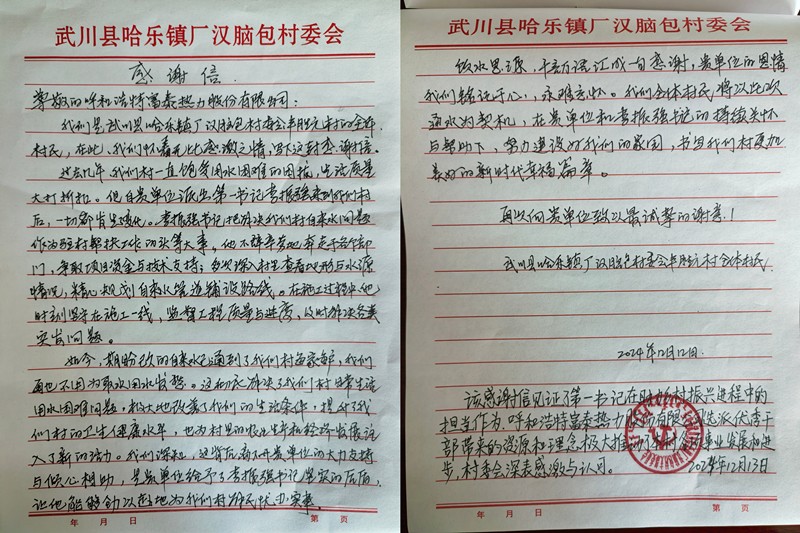 武川县哈乐镇厂汉脑包村委会
感谢信
尊敬的呼和浩特富泰热力股份有限公司:
我们是武川县哈乐镇厂汉脑包村委会村的全体
村民,在此,我们怀着无比感激之情,写下这封感谢信。
过去几年,我们村一直饱受用水困难的困扰,生活质量
大打折扣。但自贵单位派出第一书记李振强来到我们村
后,一切都发生了变化。李振强书记把解决我们村自来水问题
作为驻村帮扶工作的头等大事,他不辞辛劳地奔走于各个部
门,争取项目资金与技术支持;多次深入村里查看地形与水源
情况,精心规划自来水管道铺设路线。在施工过程中,他
时刻坚守在施工一线,监督工程质量与进度,及时解决各类
突发问题。
如今,期盼已久的自来水已通到了我们村每家每户,我们
再也不用为取水用水发愁。这彻底解决了我们村日常生活
用水困难问题,极大地改善了我们的生活条件,提升了我
们村的卫生健康水平,也为村里的农业生产和经济发展注
入了新的活力。我们深知,这背后离不开贵单位的大力支持
与倾心相助,是贵单位给予了李振强书记坚实的后盾,
让他能够全力以赴地为我们村解民忧办实事。
年 月 日 第 页
武川县哈乐镇厂汉脑包村委会
饮水思源,千言万语汇成一句感谢,贵单位的恩情
我们铭记于心,永难忘怀。我们全体村民将以此次
通水为契机,在贵单位和李振强书记的持续关怀
与帮助下,努力建设好我们的家园,书写我们村更加
美好的新时代幸福篇章。
再次向贵单位致以最诚挚的谢意!
武川县哈乐镇厂汉脑包村委会村全体村民
2024年12月12日
该感谢信见证了第一书记在助力乡村振兴进程中的
担当作为,呼和浩特富泰热力股份有限公司选派优秀干
部带来的资源和理念,极大推动了事业发展和进
步,村委会深表感激与认可。 2024年12月13日
年 月 日 第 页